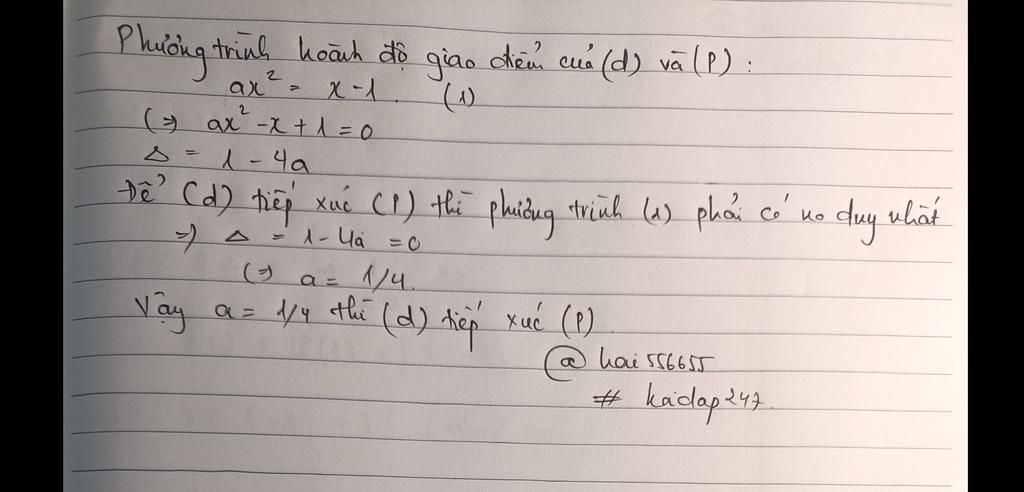 Phương trình hoành độ giao điểm của (d) và (P) :
ax² = x - 1. (1)
(=) ax² - x + 1 = 0
Δ = 1 - 4a
Để (d) tiếp xúc (P) thì phương trình (1) phải có no duy nhất
=) Δ = 1 - 4a = 0
(=) a = 1/4.
Vậy a = 1/4 thì (d) tiếp xúc (P).
@ hai556655
# hoidap247.